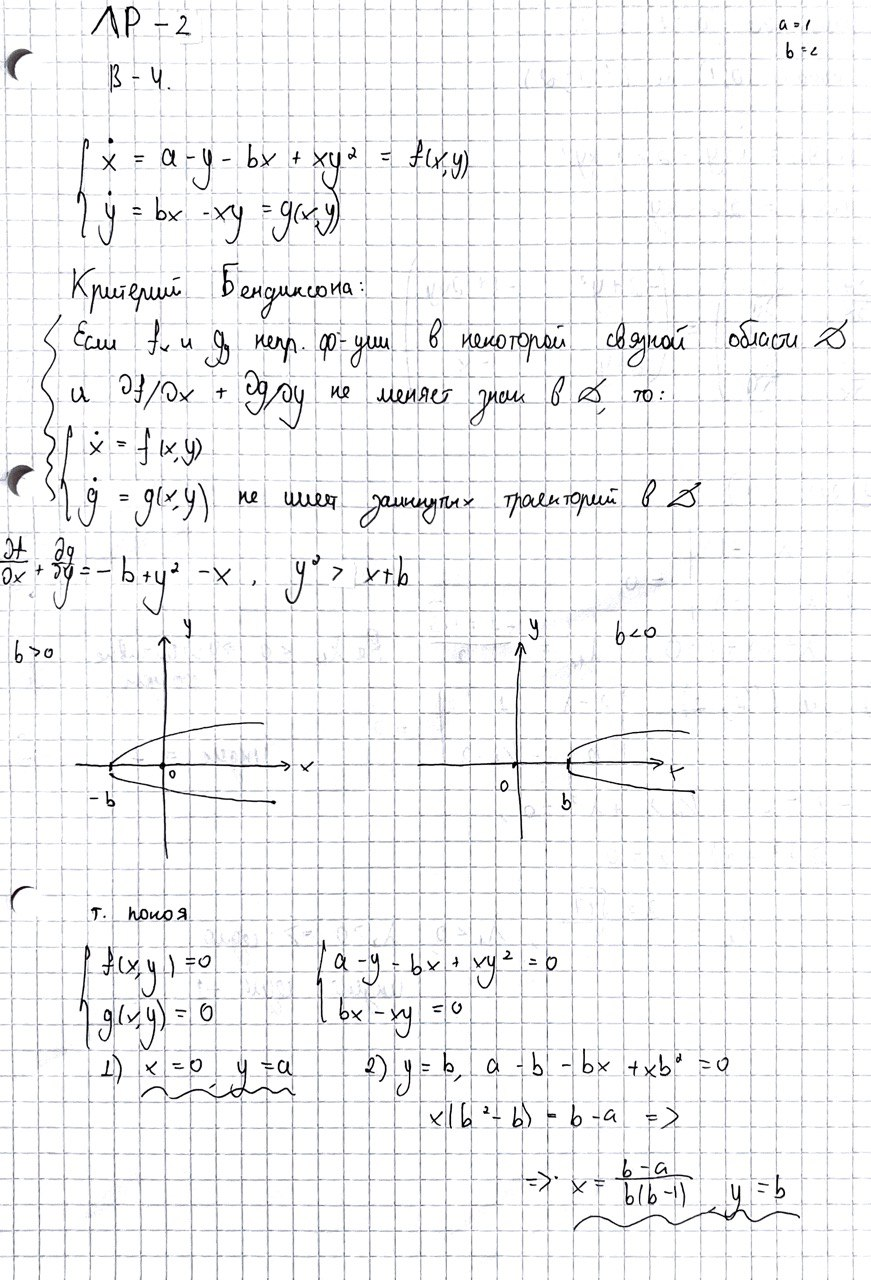 ЛР - 2
a = 1
b = 2
В - 4.
ẋ = a - y - bx + xy² = f(x,y)
ẏ = bx - xy = g(x,y)
Критерий Бендиксона:
Если fₓ и g_y непр. ф-ции в некоторой связной области D
и ∂f/∂x + ∂g/∂y не меняет знак в D, то:
ẋ = f(x,y)
ġ = g(x,y) не имеет замкнутых траекторий в D
∂f/∂x + ∂g/∂y = - b + y² - x , y² > x+b
b > 0
y
x
0
-b
b < 0
y
x
0
b
т. покоя
f(x,y) = 0
g(x,y) = 0
a - y - bx + xy² = 0
bx - xy = 0
1) x = 0, y = a
2) y = b, a - b - bx + xb² = 0
x(b² - b) = b - a =>
=> x = (b-a)/(b(b-1)), y = b